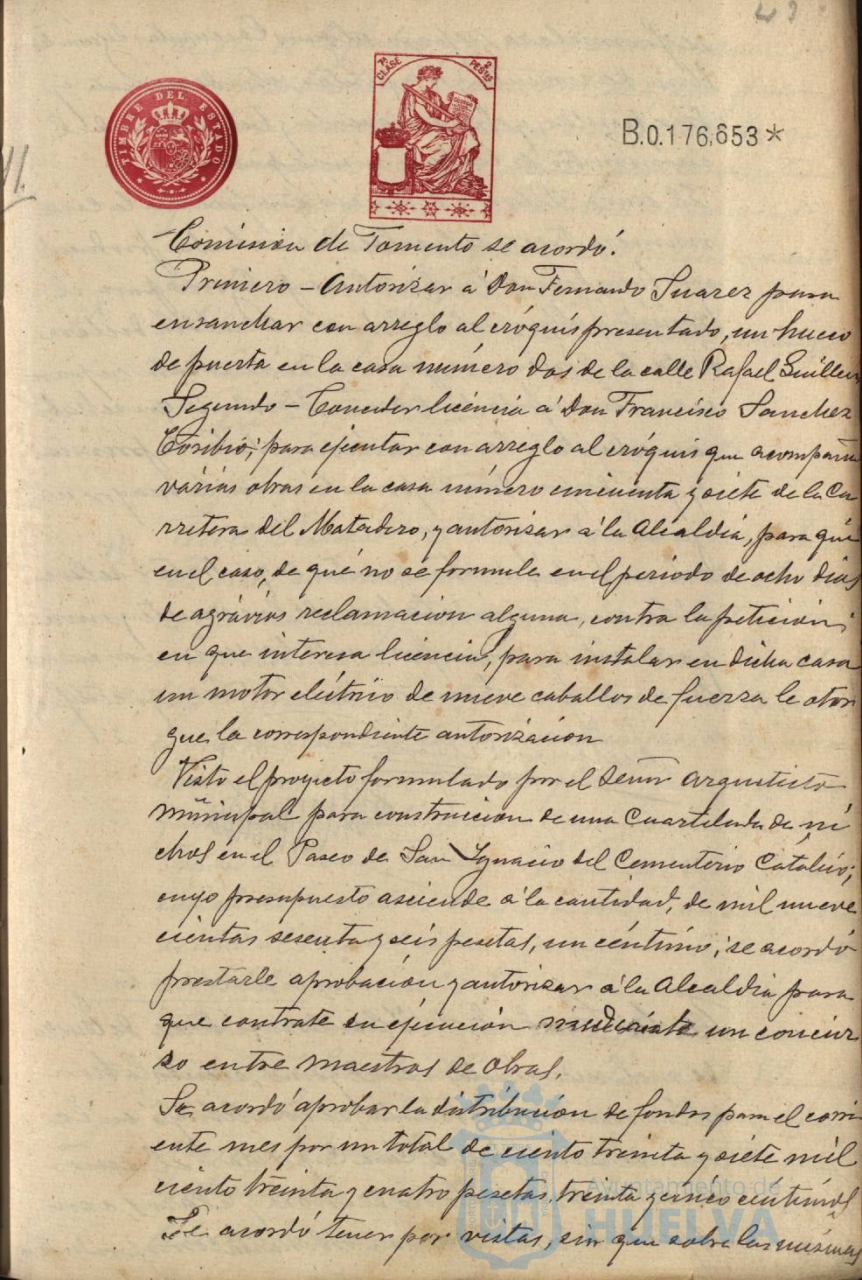 43
TIMBRE DEL ESTADO
7ª CLASE 2 PESTAS
B.0.176,653*
Comision de Fomento se acordó.
Primero - Autorizar á Don Fernando Suarez para
ensanchar con arreglo al cróquis presentado, un hueco
de puerta en la casa número dos de la calle Rafael Guillen
Segundo - Conceder licéncia á Don Francisco Sanchez
Toribio; para ejecutar con arreglo al cróquis que acompaña
várias obras en la casa número cincuenta y siete de la Ca
rretera del Matadero, y autorizar á la Alcaldia, para que
en el caso, de qué no se formule en el periodo de ocho dias
de agrávios reclamacion alguna, contra la peticion;
en que interesa licencia, para instalar en dicha casa
un motor eléctrico de nueve caballos de fuerza le otor
gue la correspondiente autorización
Visto el proyecto formulado por el Señor Arquitecto
Municipal para construcion de una Cuartelada de ni
chos en el Paseo de San Ygnacio del Cementerio Católico;
cuyo presupuesto asciende á la cantidad, de mil nueve
cientas sesenta y seis pesetas, un céntimo; se acordó
prestarle aprobación y autorizar á la Alcaldia para
que contrate su ejecución mediante un concur
so entre maestros de obras.
Se acordó aprobar la distribución de fondos para el corri
ente mes por un total de ciento treinta y siete mil
ciento treinta y cuatro pesetas, treinta y cinco centimos
Se acordó tener por vistas, sin que sobre las mismas
Ayuntamiento de
HUELVA